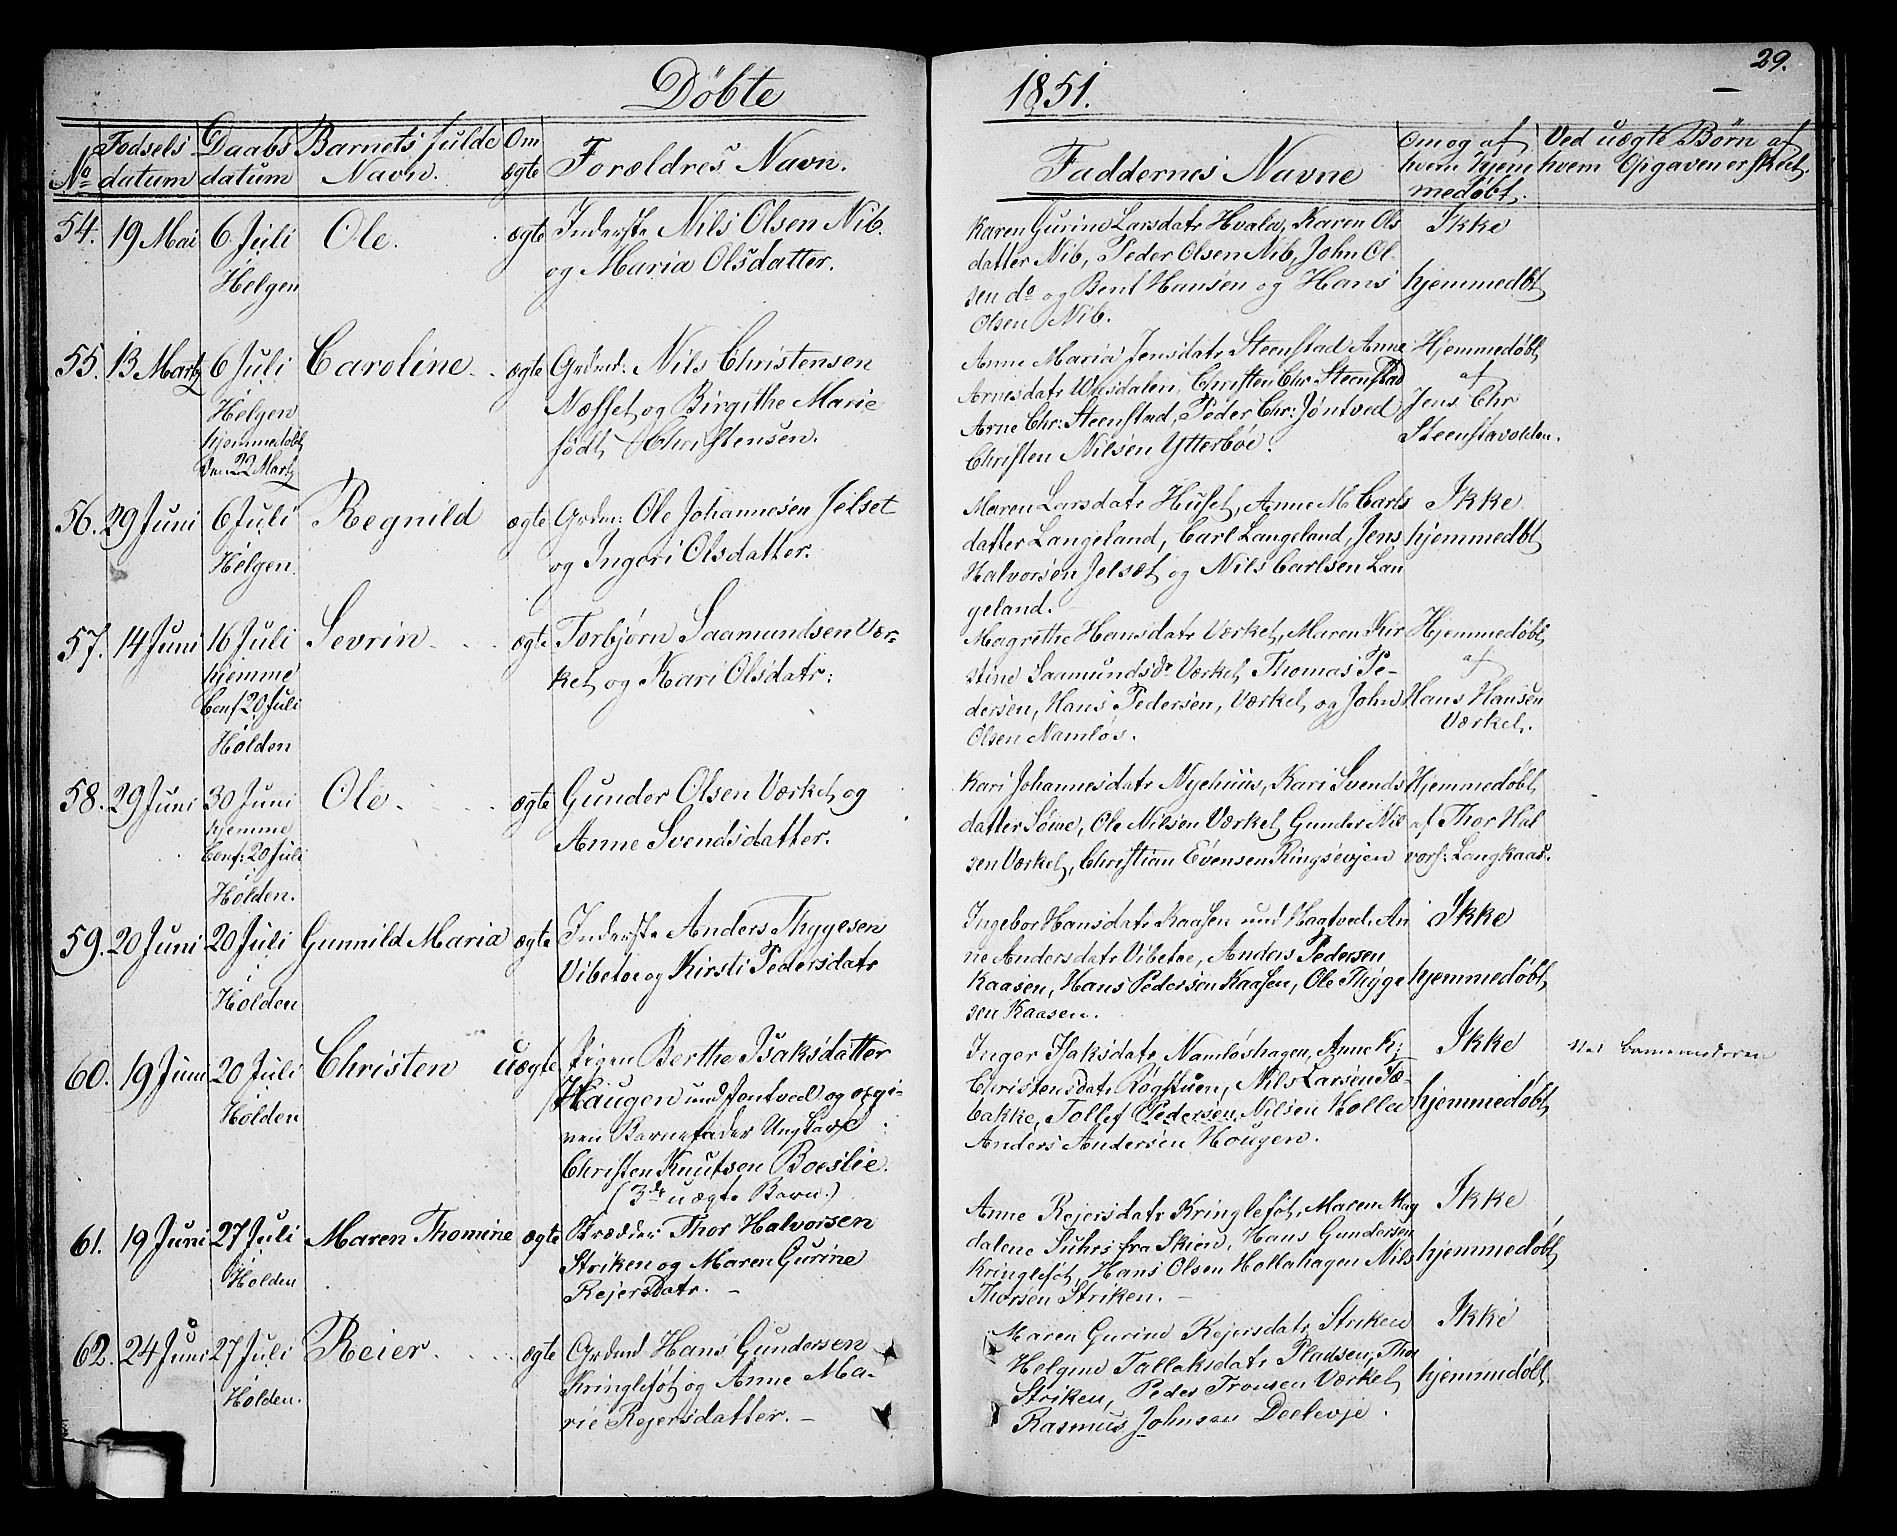 Döbte
1851.
29.
No
Fødsels datum
Daabs datum
Barnets fulde Navn.
Om ægte
Forældres Navn.
Faddernes Navne
Om og af hvem hjem medøbt.
Ved uægte Børn af hvem Opgaven er skeet.
54. 19 Mai 6 Juli Ole. ægte Inderste Nils Olsen Nib.
Helgen og Maria Olsdatter.
Karen Gurine Larsdatr Hvala, Karen Ols
datter Nib, Peder Olsen Nib, John Ol
sen do og Bent Hansen og Hans
Olsen Nib.
Ikke
hjemmedøbt
55. 13 Martz 6 Juli Caroline ægte Grdmd: Nils Christensen
Helgen Næsset og Birgithe Marie
hjemmedøbt født Christensen.
den 22 Martz
Anne Maria Jensdatr Steenstad Anne
Arnesdatr, Christen Chr. Steenstad
Arne Chr: Steenstad, Peder Chr: Jøntved
Christen Nilsen Ytterbøe.
Hjemmedøbt
af
Jens Chr
Steenstavolden.
56. 29 Juni 6 Juli Regnild ægte Grdm: Ole Johannesen Jelset
Helgen og Ingeri Olsdatter.
Maren Larsdatr Huset, Anne M Carls
datter Langeland, Carl Langeland, Jens
Halvorsen Jelset og Nils Carlsen Lan
geland.
Ikke
hjemmedbt
57. 14 Juni 16 Juli Sevrin ægte Torbjørn Saamundsen Vær-
hjemme ket og Kari Olsdatr:
Conf 20 Juli
Holden
Magrethe Hansdatr Værket, Maren Kir
stine Saamundsdr Værket Thomas Pe-
dersen, Hans Pedersen, Værket og John
Olsen Namløs.
Hjemmedøbt
af
Hans Hansen
Værket.
58. 29 Juni 30 Juni Ole ægte Gunder Olsen Værket og
hjemme Anne Svendsdatter.
Conf: 20 Juli
Holden.
Kari Johannesdatr Nyehuus, Kari Svends
datter Søve, Ole Nilsen Værket Gunder Nil
sen Værket, Christian Evensen Ringsevjen
Hjemmedøbt
af Thor Hal
vors: Langkaas.
59. 20 Juni 20 Juli Gunnild Maria ægte Inderste Anders Thygesen
Holden Vibetoe og Kirsti Pedersdatr
Ingebor Hansdatr Kaasen und Hagtved, An
ne Andersdatr Vibetoe, Anders Pedersen
Kaasen, Hans Pedersen Kaasen, Ole Thyge
sen Kaasen.
Ikke
hjemmedøbt
60. 19 Juni 20 Juli Christen uægte Pigen Berthe Isaksdatter
Holden Haugen und Jentved og opgi-
ven Barnefader Ungkarl
Christen Knutsen Boeslie.
(3die uægte Barn.)
Inger Isaksdatr Namløshagen, Anne K:
Christensdatr Røgstuen, Nils Larsen Tæ-
bakke, Tollef Pedersen, Nilsen Holla
Anders Andersen Hougen.
Ikke
hjemmedøbt
Ved barnemoderen
61. 19 Juni 27 Juli Maren Thomine ægte Thor Halvorsen
Holden Striken og Maren Gurine
Rejersdatr.
Anne Rejersdatr Kringlefot, Maren Mag
dalene Suhrs fra Skien, Hans Gundersen
Kringlefot, Hans Olsen Hollahagen Nils
Thorsen Striken.
Ikke
hjemmedøbt
62. 24 Juni 27 Juli Reier ægte Grdmd Hans Gundersen
Holden. Kringlefot og Anne Ma-
rie Rejersdatter.
Maren Gurine Rejersdatr Striken
Helgine Tallaksdatr Pladsen, Thor
Striken, Peder Tronsen Værket
Rasmus Johnsen Deelevje.
Ikke
hjemmedøbt